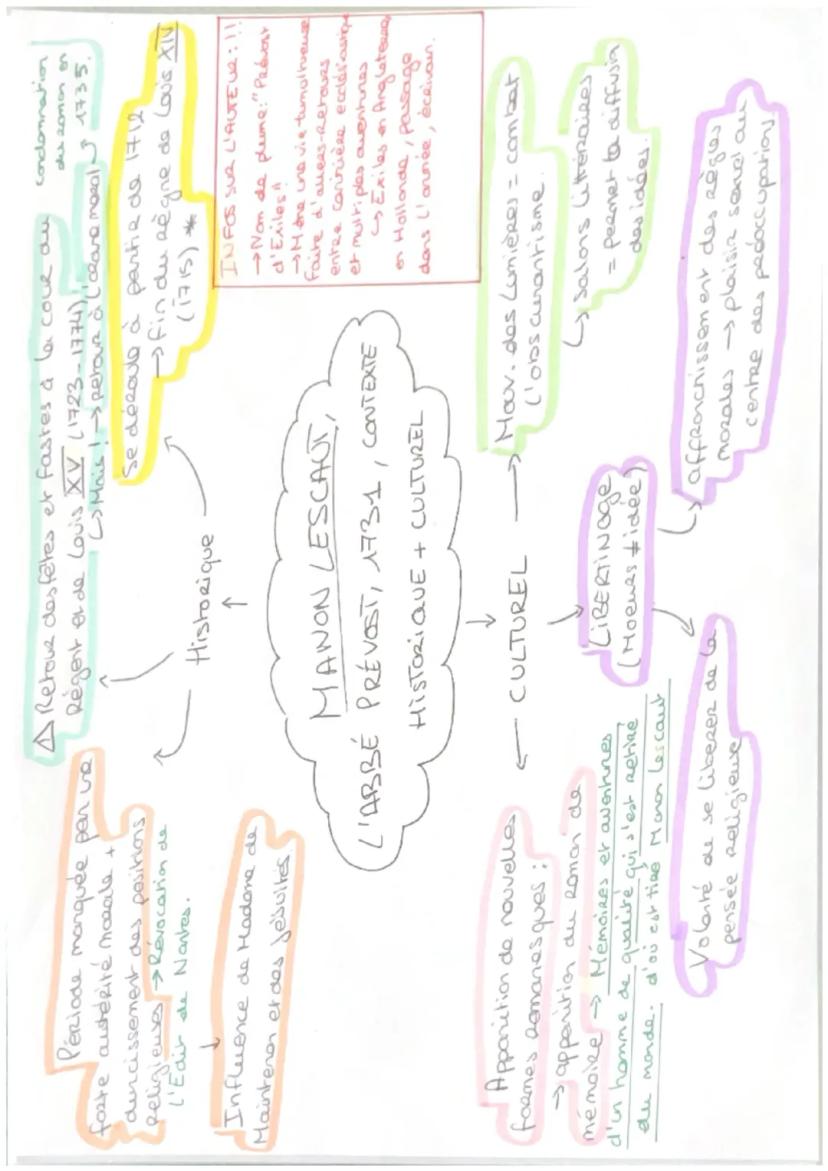 Période marquée par une
forte austérité morale +
durcissement des positions
religieuses → Révocation de
l'Édit de Nantes.
Influence de Madame de
Maintenon et des jésuites.
⚠ Retour des fêtes et fastes à la cour du
Régent et de Louis XV (1723-1774)
↳ Mais ! → retour à l'ordre moral →
condamnation
du roman en
1735.
Se déroule à partir de 1712
→ fin du règne de Louis XIV
(1715) *
INFOS SUR L'AUTEUR : !!
→ Nom de plume : "Prévost
d'Exiles"
→ Mène une vie tumultueuse
faite d'allers-retours
entre carrière ecclésiastique
et multiples aventures
↳ Exilés en Angleterre,
en Hollande, passage
dans l'armée, écrivain.
Historique
MANON LESCAUT,
L'ABBÉ PRÉVOST, 1731, CONTEXTE
HISTORIQUE + CULTUREL
CULTUREL
Apparition de nouvelles
formes romanesques :
→ apparition du roman de
mémoire → Mémoires et aventures
d'un homme de qualité qui s'est retiré
du monde. d'où est tiré Manon Lescaut
Mouv. des Lumières = combat
l'obscurantisme.
↳ Salons littéraires
= permet la diffusion
des idées.
LIBERTINAGE
(Moeurs ≠ idée)
Volonté de se libérer de la
pensée religieuse
affranchissement des règles
morales → plaisir sexuel au
centre des préoccupation,